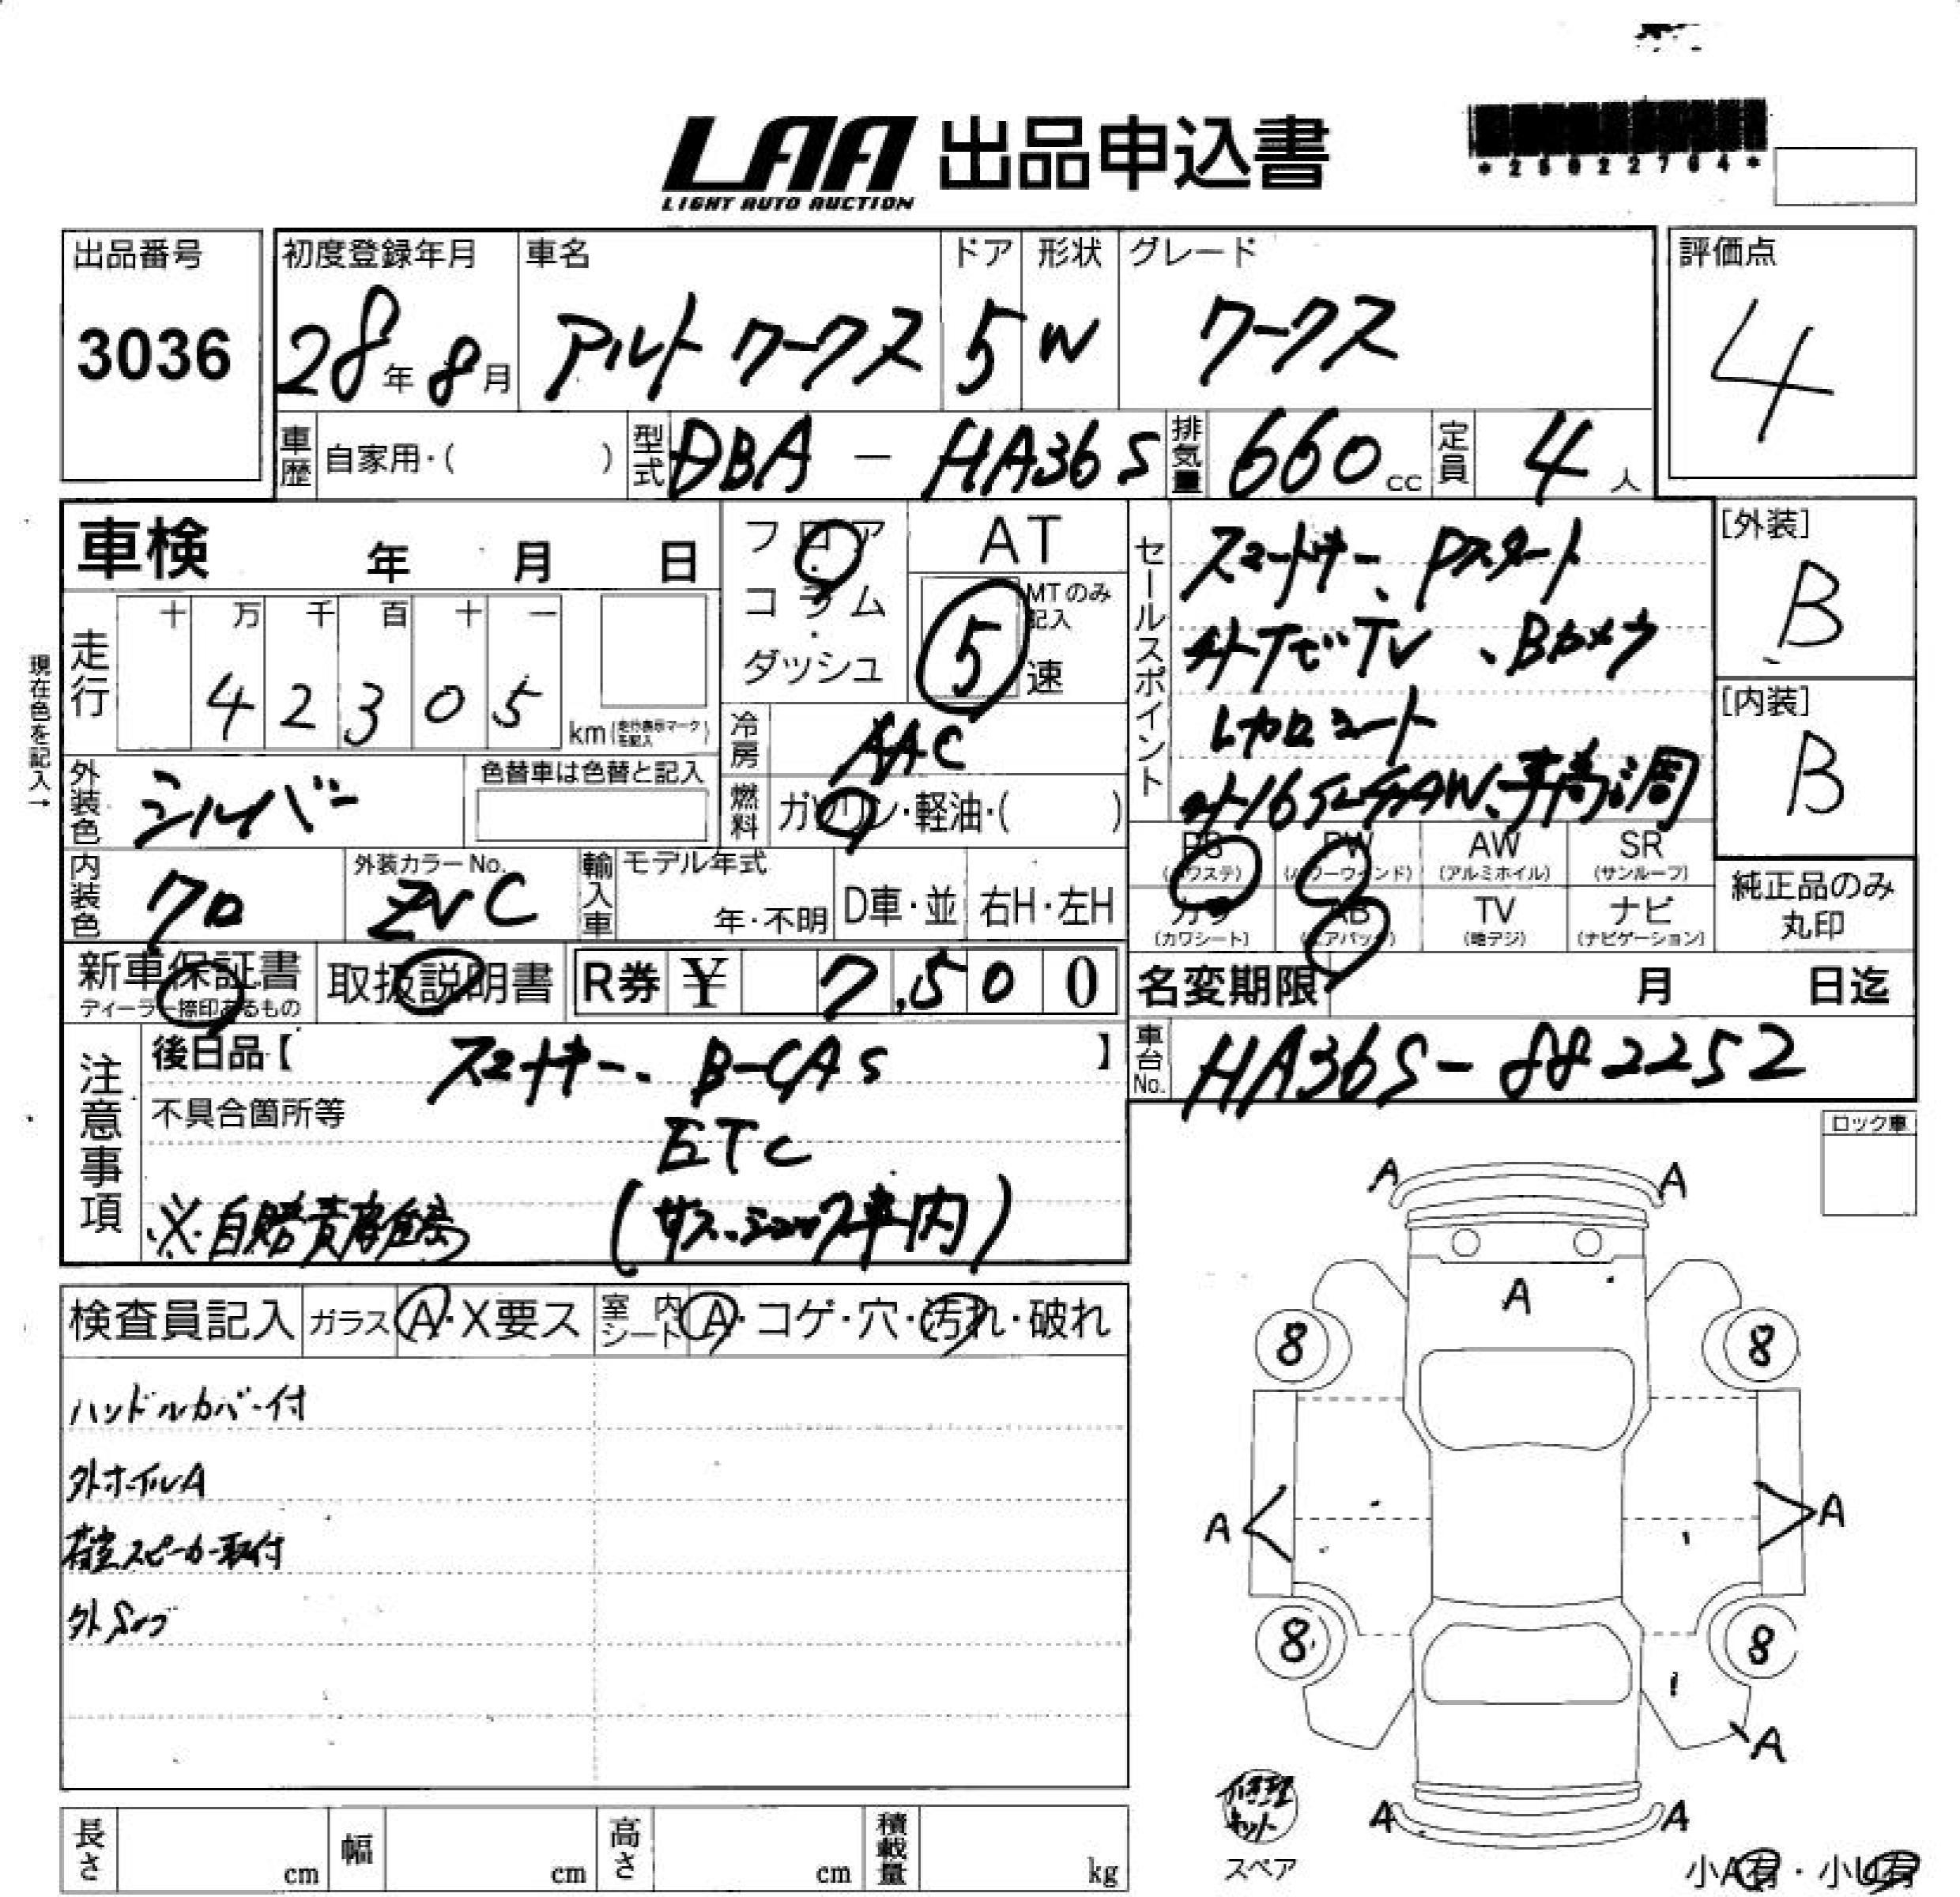 LAA 出品申込書
LIGHT AUTO AUCTION
*25022764*
出品番号
3036
初度登録年月
28年 8月
車名
アルト ワークス
ドア
5
形状
W
グレード
ワークス
評価点
4
車歴 自家用・( )
型式 DBA - HA36S
排気量 660 cc
定員 4 人
車検 年 月 日
走行 十 万 千 百 十 一
4 2 3 0 5 km (走行表示マークを記入)
現在色を記入→
外装色 シルバー
色替車は色替と記入
内装色 クロ
外装カラーNo. ZVC
フロア・コラム・ダッシュ
AT
MTのみ記入
5 速
冷房 AAC
燃料 ガソリン・軽油・( )
輸入車 モデル年式 年・不明 D車・並 右H・左H
セールスポイント
スマートキー、Pスタート
外ナビTV、Bカメラ
レカロシート
外16インチAW、車高調
[外装]
B
[内装]
B
PS (パワステ) PW (パワーウィンド) AW (アルミホイル) SR (サンルーフ)
カワ (カワシート) AB (エアバック) TV (地デジ) ナビ (ナビゲーション)
純正品のみ丸印
新車保証書 ディーラー捺印あるもの
取扱説明書
R券 ¥ 7,500
名変期限 月 日迄
車台No. HA36S-882252
注意事項
後日品【 スマートキー、B-CAS 】
不具合箇所等
ETC
※自賠責
(サス、ショック車内)
ロック車
検査員記入 ガラス A・X要ス 室内シート A・コゲ・穴・汚れ・破れ
ハンドルカバー付
外ホイルA
荷室スピーカー取付
外
A A
A
8 8
A A
8 8
A
A A
修理キット
スペア
小A有・小U有
長さ cm 幅 cm 高さ cm 積載量 kg